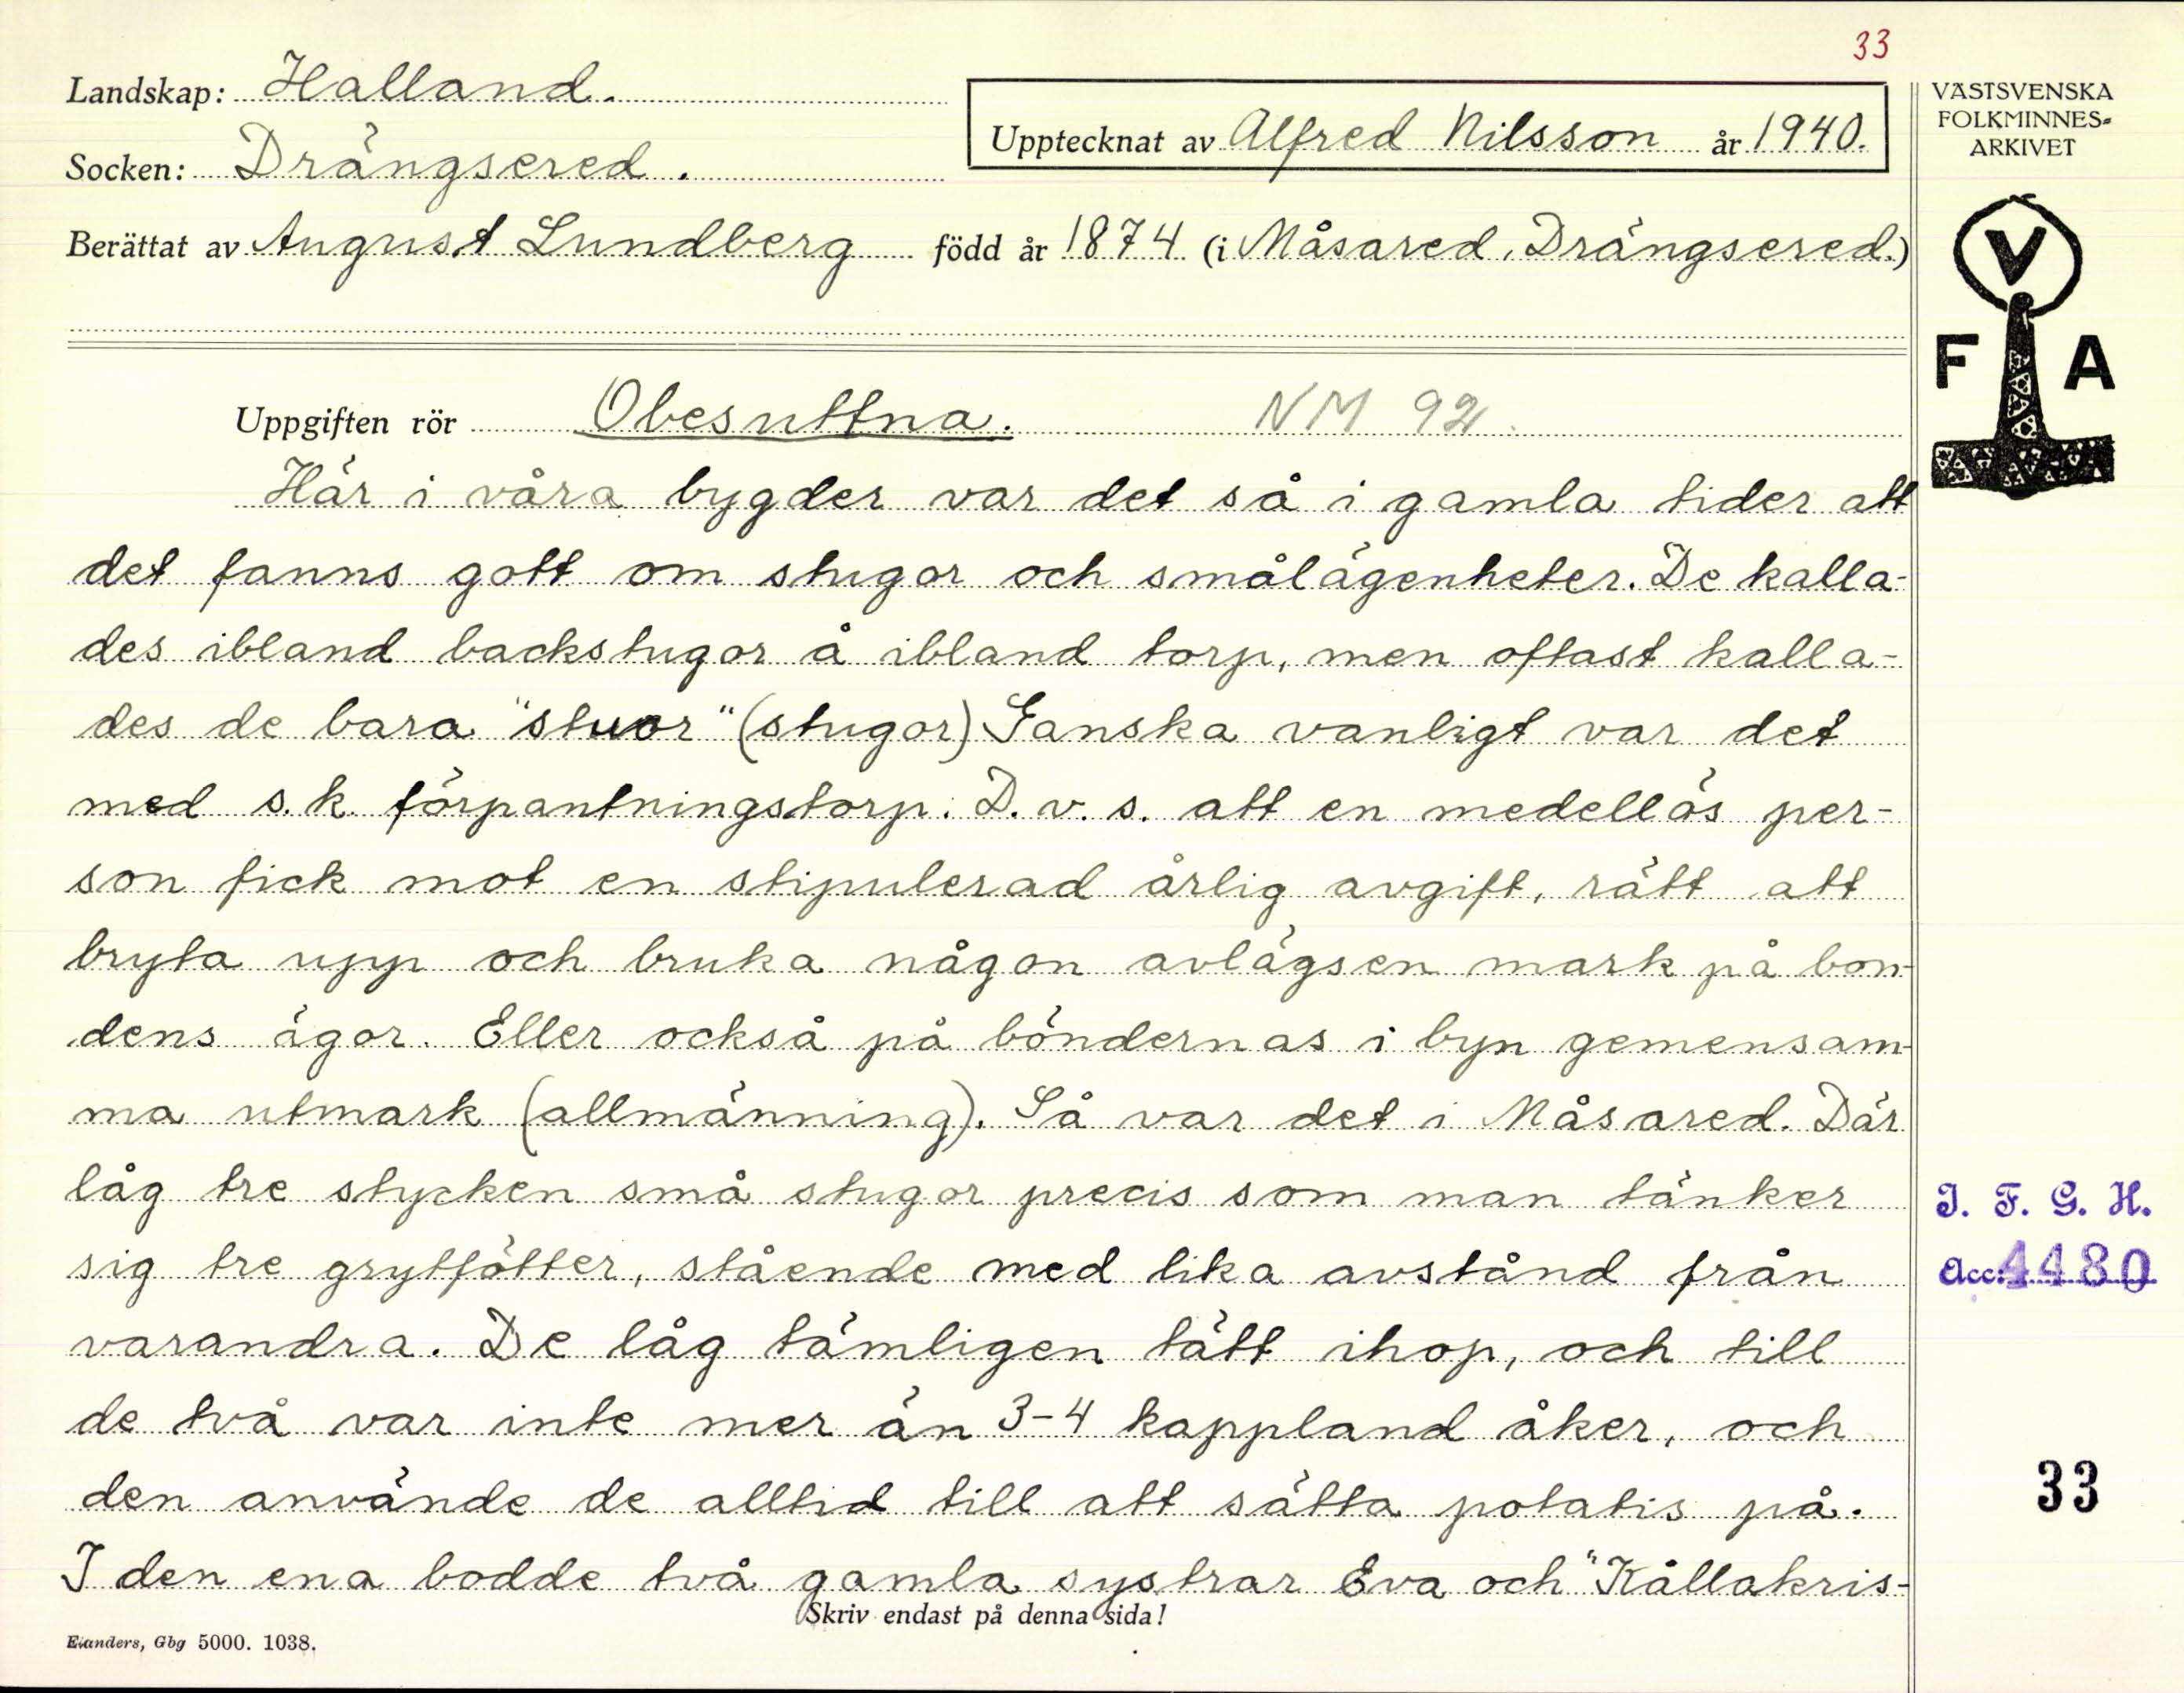 33
Landskap: Halland.
Socken: Drängsered.
Upptecknat av Alfred Nilsson år 1940.
Berättat av August Lundberg född år 1874 (i Måsared, Drängsered.)
Uppgiften rör Obesuttna. NM 92.
Här i våra bygder var det så i gamla tider att
det fanns gott om stugor och smålägenheter. De kalla-
des ibland backstugor å ibland torp, men oftast kalla-
des de bara "stuor" (stugor) Ganska vanligt var det
med s.k. förpantningstorp. D.v.s. att en medellös per-
son fick mot en stipulerad årlig avgift, rätt att
bryta upp och bruka någon avlägsen mark på bon-
dens ägor. Eller också på böndernas i byn gemensam-
ma utmark (allmänning). Så var det i Måsared. Där
låg tre stycken små stugor precis som man tänker
sig tre grytfötter, stående med lika avstånd från
varandra. De låg tämligen tätt ihop, och till
de två var inte mer än 3-4 kappland åker, och
den använde de alltid till att sätta potatis på.
I den ena bodde två gamla systrar Eva och "Kållakris-
Skriv endast på denna sida!
Elanders, Gbg 5000. 1038.
VÄSTSVENSKA
FOLKMINNES-
ARKIVET
V
F A
I. F. G. H.
Acc: 4480
33